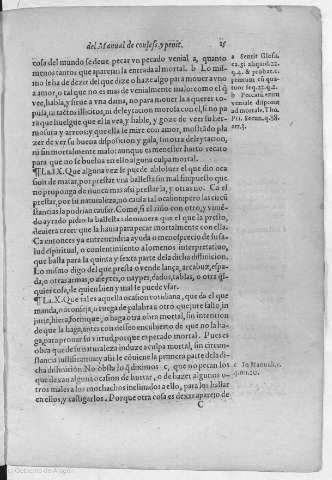 del Manual de confess. y penit. 25
cosa del mundo se deue, pecar vn pecado venial a, quanto
menos tantos que aparejan la entrada al mortal. b Lo mis-
mo se ha de dezir del que dize o haze algo para mouer a vno a
amor, o tal que no es mas de venialmente malo: como el q̃
vee, habla, y sirue a vna dama, no para mouer la a querer co-
pula, ni tactos illicitos, ni delectacion morosa con el, si no pa
ra que huelgue que el la vea, y hable, y goze de ver su her-
mosura y arreos: y que ella le mire con amor, mostrãdo pla
zer de ver su buena disposition y gala, sin otra delectacion,
ni fin mortalmente malo: aunque es menester harto recato
para que no se buelua en ello alguna culpa mortal.
¶ La. IX. Que alguna vez se puede absoluer el que dio oca
sion de matar, por prestar vna ballesta sin mal fin puesto que
no proponga de nunca mas assi prestarla, y otras no. Ca el
prestar, por su naturaleza, no causa tal ocasion pero las circũ
stancias la podrian causar. Como, si el riñio con otro, y vinié-
do ayrado pidio la ballesta: de manera que el que la presto,
deuiera creer que la hauia para pecar mortalmente con ella.
Ca entonces ya entreuendria ayuda o menosprecio de su sa-
lud spiritual, o contentimiento a lomenos interpretatiuo,
que basta para la quinta y sexta parte de la dicha diffinicion.
Lo mismo digo del que presta o vende lança, arcabuz, espa-
da, o otras armas, o afeytes, o naypes, dados, tablas, o otra q̃l
quier cosa, de quien si bien y mal se puede vsar.
¶ La. X. Que tal es aquella ocasion cotidiana, que da el que
manda, o conseja, o ruega de palabra a otro que jure falso, in
jurie, hiera, fornique, o haga otra obra mortal, sin intencion
de que la haga, antes con desseo encubierto de que no la ha-
ga, para prouar su virtud, porque es pecado mortal. Pues es
obra que de su naturaleza induze a culpa mortal, sin circun-
stancia iustificatiua: y assi le cõuiene la primera parte de la di-
cha diffinicion. No obsta lo q̃ diximos c, que no pecan los
que dexan alguna ocasion de hurtar, o de hazer algunos o-
tros males a los mochachos inclinados a ello, para los hallar
en ellos, y castigarlos. Porque otra cosa es dexar aparejo de
C
a Sentit Glosa.
ca. si aliquid. 22.
q. 4. & probat c.
primum cũ qua-
tuor seq. 22. q. 2.
b Peccatũ enim
veniale disponit
ad mortale. Tho.
c In Manuali, c.